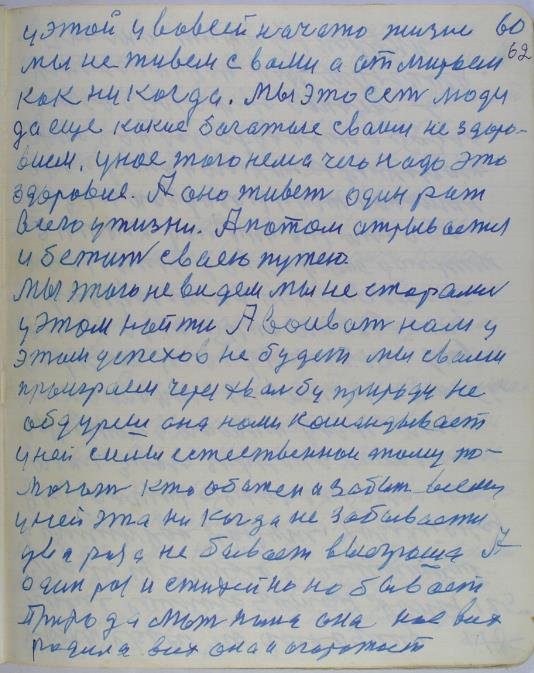 у этой у вовсей начато жизне 60
мы не живем с вами а отмираем 62
как никогда. Мы это сет люди
да еще какие богатые своим не здоро-
вием. у нас того нема чего надо это
здоровие. А оно живет один раз
всего у жизни. А потом атрывается
и бежит сваею путею
мы этого не видем мы не старались
у этом найти А воиват нам у
этом успехов не будет мы свами
проиграем через хвальбу природу не
обдуриш она нами командывает
у ней силы естественнои этому по-
могат кто обижен и забыт всеми
у ней эта никогда не забывается
два раза не бывает выиграша А
один раз и стихейно но бывает
природа мат она нас всех
родила всех она и